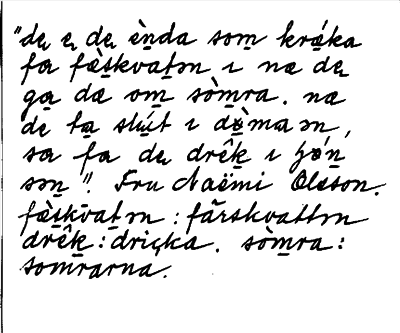 "dɛ ɛ dɛ ènda som̱ krǽka
fɑ fæ̀s̱kvat̲ən ı næ dɛ
ga̲ dæ om̱ sòm̱ra. næ
de ta̲ slút ı dø̀m̱a ən,
sa fa dɛ drêḵ ı
sən̲". Fru Naëmi Olsson.
fæ̀s̱kvat̲ən : färskvattən
drêḵ : dricka. sòm̱ra :
somrarna.